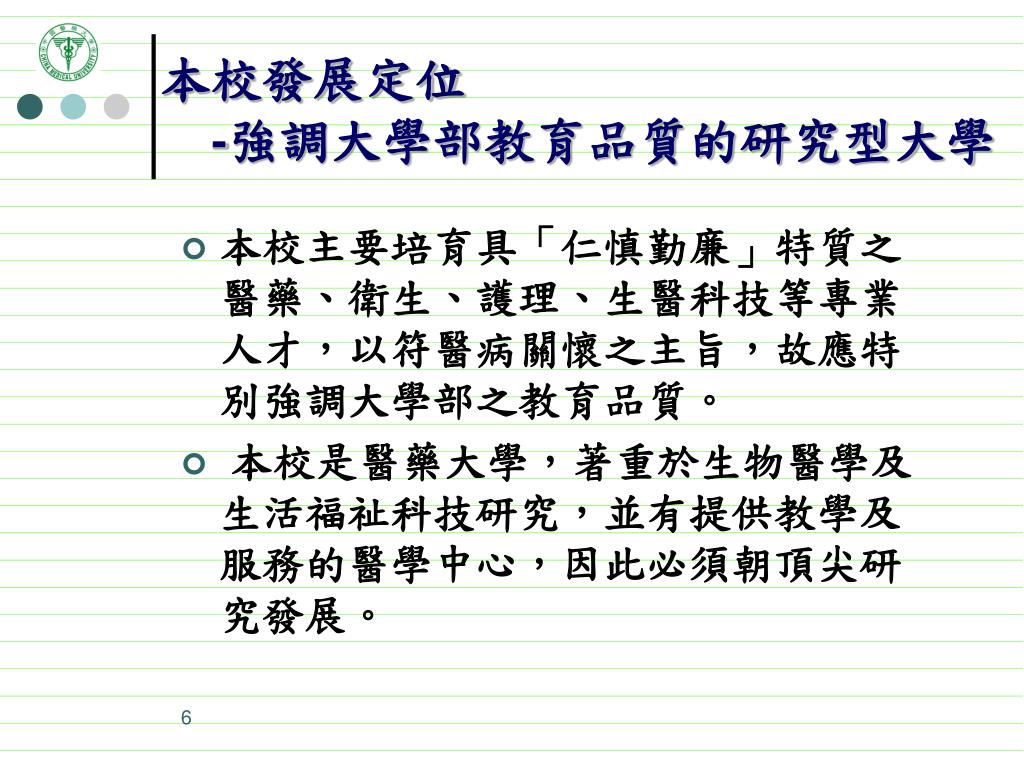 中國醫藥大學
CHINA MEDICAL UNIVERSITY
本校發展定位
-強調大學部教育品質的研究型大學
本校主要培育具「仁慎勤廉」特質之
醫藥、衛生、護理、生醫科技等專業
人才，以符醫病關懷之主旨，故應特
別強調大學部之教育品質。
本校是醫藥大學，著重於生物醫學及
生活福祉科技研究，並有提供教學及
服務的醫學中心，因此必須朝頂尖研
究發展。
6